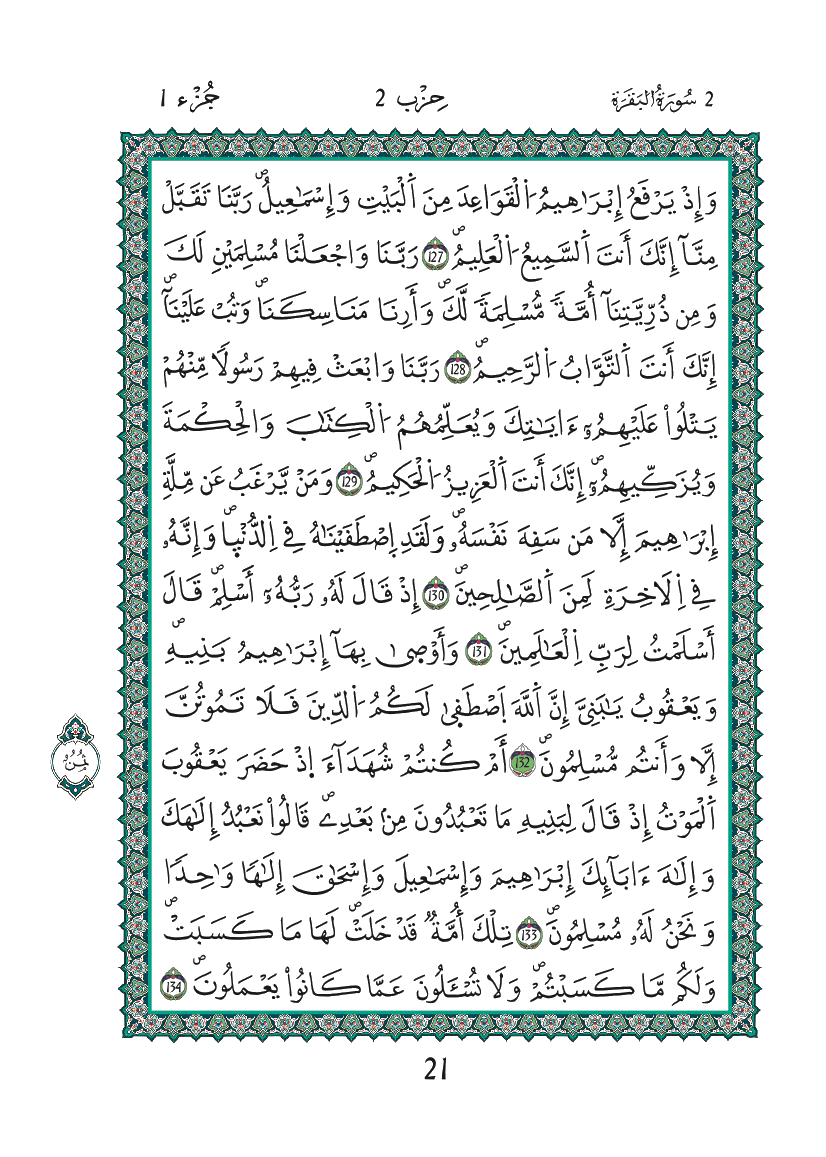 2 سُورَةُ البَقَرَة
حِزْب 2
جُزْء 1
وَإِذْ يَرْفَعُ إِبْرَٰهِيمُ اُ۬لْقَوَاعِدَ مِنَ اَ۬لْبَيْتِ وَإِسْمَٰعِيلُۖ رَبَّنَا تَقَبَّلْ
مِنَّآ إِنَّكَ أَنتَ اَ۬لسَّمِيعُ اُ۬لْعَلِيمُۖ 127 رَبَّنَا وَاجْعَلْنَا مُسْلِمَيْنِ لَكَ
وَمِن ذُرِّيَّتِنَآ أُمَّةٗ مُّسْلِمَةٗ لَّكَۖ وَأَرِنَا مَنَاسِكَنَاۖ وَتُبْ عَلَيْنَآۖ
إِنَّكَ أَنتَ اَ۬لتَّوَّابُ اُ۬لرَّحِيمُۖ 128 رَبَّنَا وَابْعَثْ فِيهِمْ رَسُولٗا مِّنْهُمْ
يَتْلُواْ عَلَيْهِمُۥٓ ءَايَٰتِكَ وَيُعَلِّمُهُمُ اُ۬لْكِتَٰبَ وَالْحِكْمَةَ
وَيُزَكِّيهِمُۥٓۖ إِنَّكَ أَنتَ اَ۬لْعَزِيزُ اُ۬لْحَكِيمُۖ 129 وَمَنْ يَّرْغَبُ عَن مِّلَّةِ
إِبْرَٰهِيمَ إِلَّا مَن سَفِهَ نَفْسَهُۥۖ وَلَقَدِ اِ۪صْطَفَيْنَٰهُ فِے اِ۬لدُّنْيٰاۖ وَإِنَّهُۥ
فِے اِ۬لَاخِرَةِ لَمِنَ اَ۬لصَّٰلِحِينَۖ 130 إِذْ قَالَ لَهُۥ رَبُّهُۥٓ أَسْلِمْۖ قَالَ
أَسْلَمْتُ لِرَبِّ اِ۬لْعَٰلَمِينَۖ 131 وَأَوْص۪يٰ بِهَآ إِبْرَٰهِيمُ بَنِيهِۖ
وَيَعْقُوبُ يَٰبَنِيَّ إِنَّ اَ۬للَّهَ اَ۪صْطَف۪يٰ لَكُمُ اُ۬لدِّينَ فَلَا تَمُوتُنَّ
إِلَّا وَأَنتُم مُّسْلِمُونَۖ 132 أَمْ كُنتُمْ شُهَدَآءَ اِ۪ذْ حَضَرَ يَعْقُوبَ
اَ۬لْمَوْتُ إِذْ قَالَ لِبَنِيهِ مَا تَعْبُدُونَ مِنۢ بَعْدِےۖ قَالُواْ نَعْبُدُ إِلَٰهَكَ
وَإِلَٰهَ ءَابَآئِكَ إِبْرَٰهِيمَ وَإِسْمَٰعِيلَ وَإِسْحَٰقَ إِلَٰهٗا وَٰحِدٗاۖ
وَنَحْنُ لَهُۥ مُسْلِمُونَۖ 133 تِلْكَ أُمَّةٞ قَدْ خَلَتْۖ لَهَا مَا كَسَبَتْۖ
وَلَكُم مَّا كَسَبْتُمْۖ وَلَا تُسْـَٔلُونَ عَمَّا كَانُواْ يَعْمَلُونَۖ 134
ثمن
21